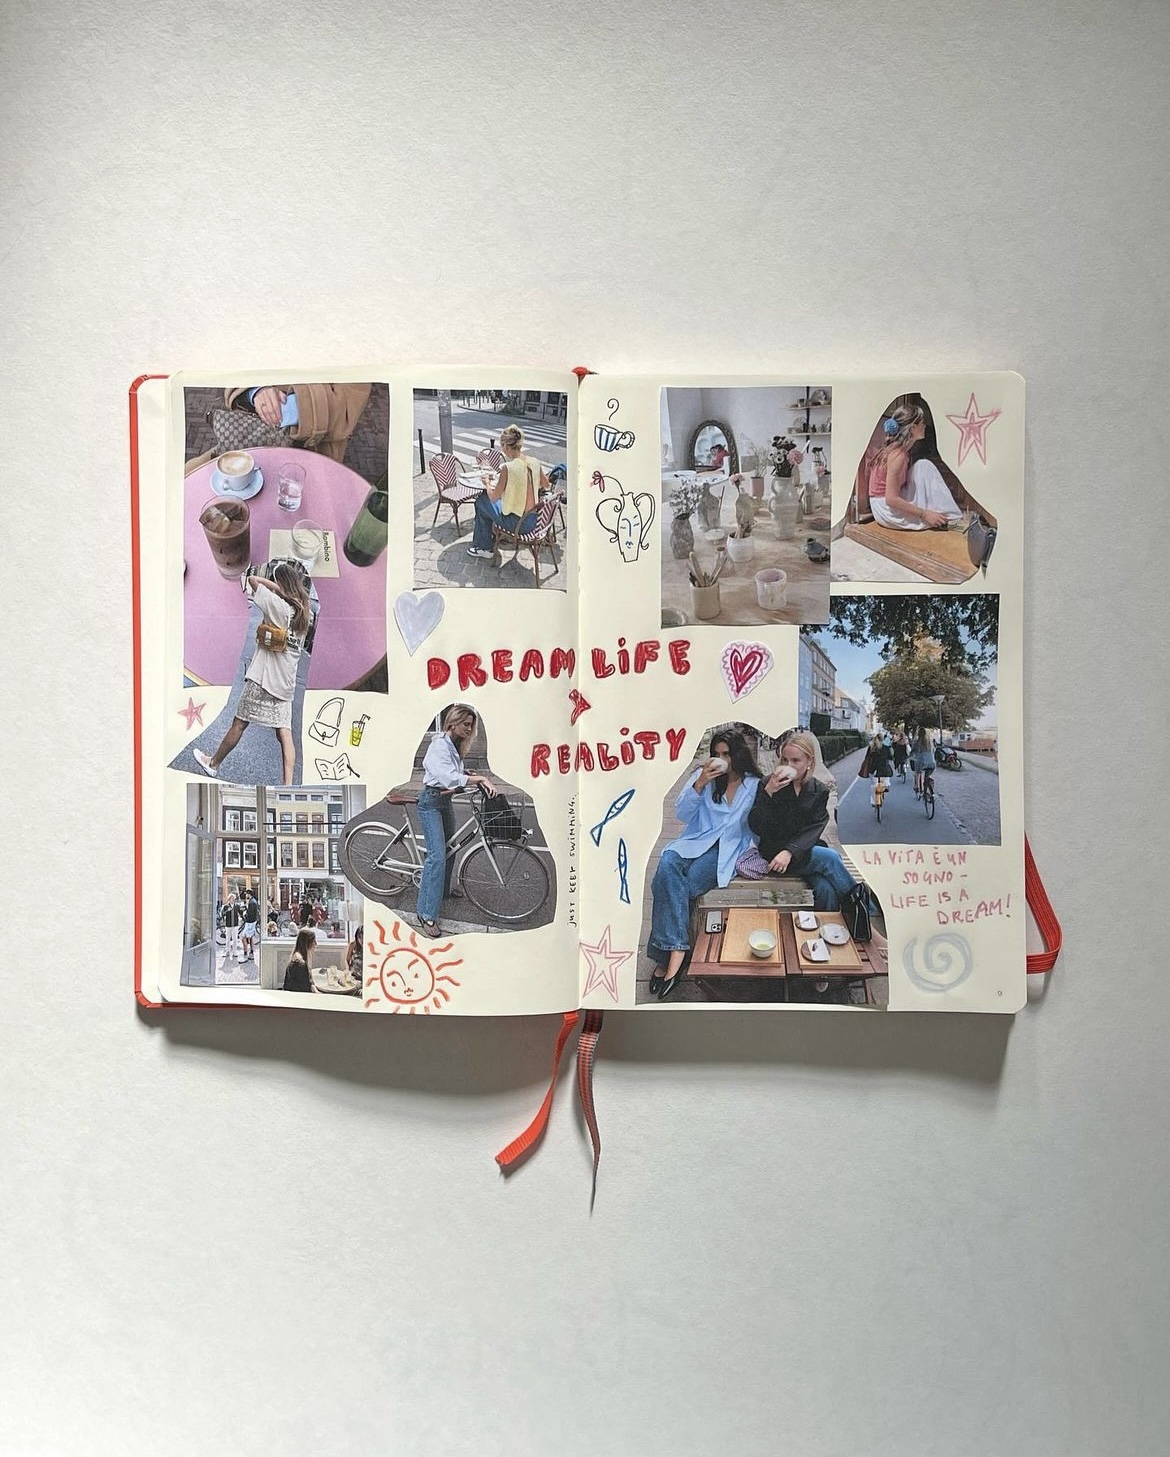 Bambino
DREAM LIFE
>
REALITY
JUST KEEP SWIMMING..
LA VITA È UN
SOGNO -
LIFE IS A
DREAM!
9